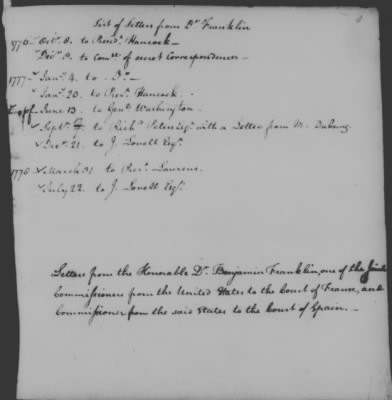 List of Letters from Dr. Franklin
1776 Octr. 8. to Presdt. Hancock
Decr. 8. to Comee. of secret Correspondence
1777 Jany. 4. to Do.
Jany. 20. to Prest. Hancock.
June 13. to Genl. Washington.
Septr. to Richd. Peters Esqr. with a Letter from M. Dubourg
Decr. 21. to J. Lovell Esqr.
1778 March 31. to Prest. Laurens.
July 22. to J. Lovell Esqr.
Letters from the Honorable Dr. Benjamin Franklin, one of the Joint
Commissioners from the United States to the Court of France, and
Commissioner from the said States to the Court of Spain.